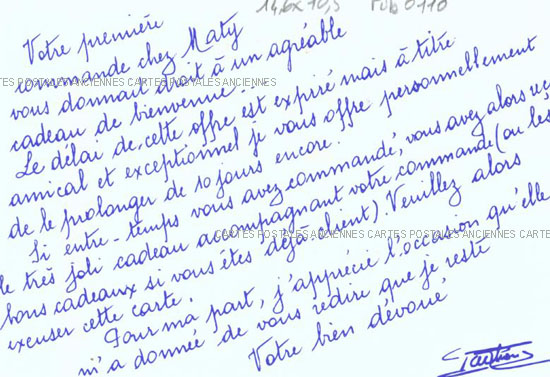 14,6x10,5 rub 0110
Votre première
commande chez Maty
vous donnait droit à un agréable
CARTES POSTALES ANCIENNES CARTES POSTALES ANCIENNES CARTES POSTALES ANCIENNES
cadeau de bienvenue.
Le délai de cette offre est expiré mais à titre
amical et exceptionnel je vous offre personnellement
de le prolonger de 10 jours encore.
Si entre-temps vous avez commandé, vous avez alors reç
le très joli cadeau accompagnant votre commande (ou les
bons cadeaux si vous êtes déjà client). Veuillez alors
CARTES POSTALES ANCIENNES CARTES POSTALES ANCIENNES CARTE
excuser cette carte.
Pour ma part, j'apprécie l'occasion qu'elle
m'a donnée de vous redire que je reste
Votre bien dévoué